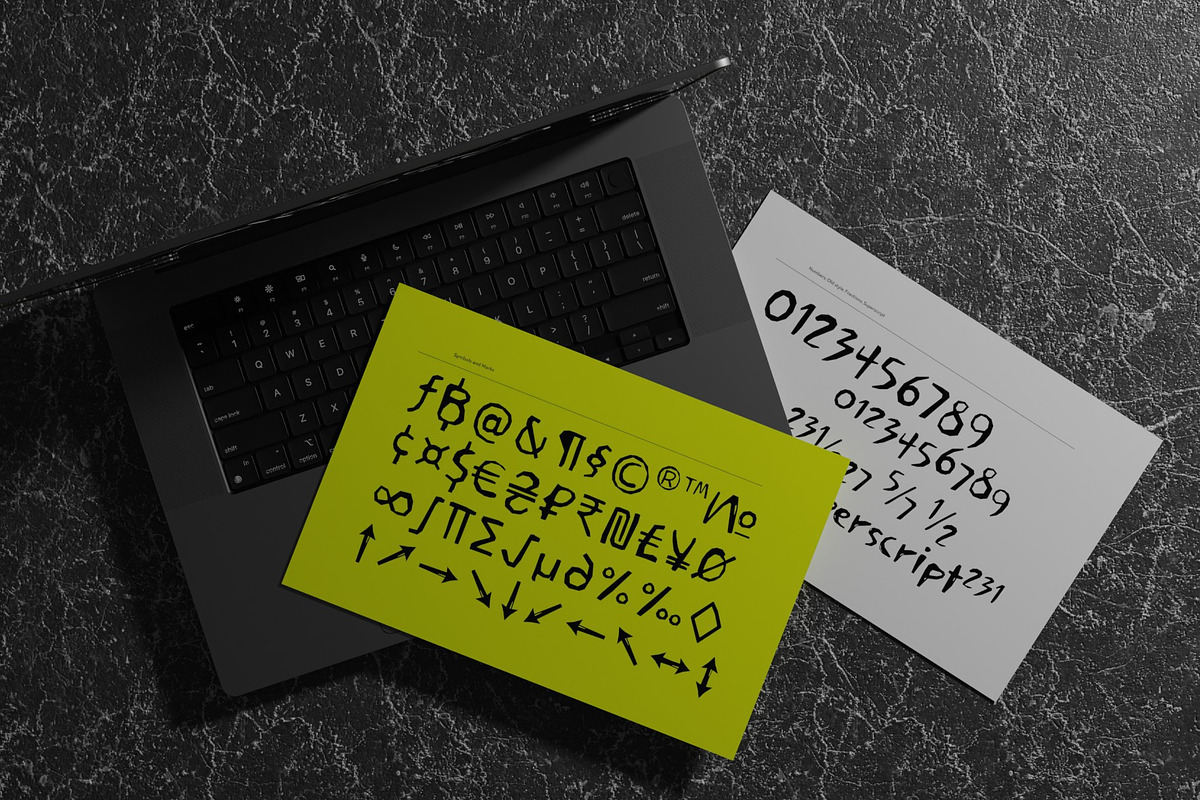 esc F1 F2 F3 F4 F5
~ ! 1 @ 2 # 3 $ 4 % 5 & 7 * 8 ( 9 ) 0 – - + = delete
tab Q W E R I O P { [ } ] | \
caps lock A S D K L : ; " ' return
shift Z X > . ? / shift
fn control option
Symbols and Marks
ƒ₿@&¶§©®™№
¢¤$€₴₽₹₪£¥Ø
∞∫∏∑√µ∂%‰◊
↑↗→↘↓↙←↖↔↕
Numbers, Old style, Fractions, Superscript
0123456789
0123456789
231/ 27 5/7 1/2
erscript²³¹